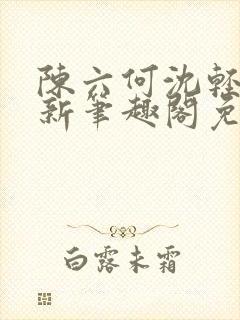 陳六何沈輕
新筆趣閣免
白露未霜